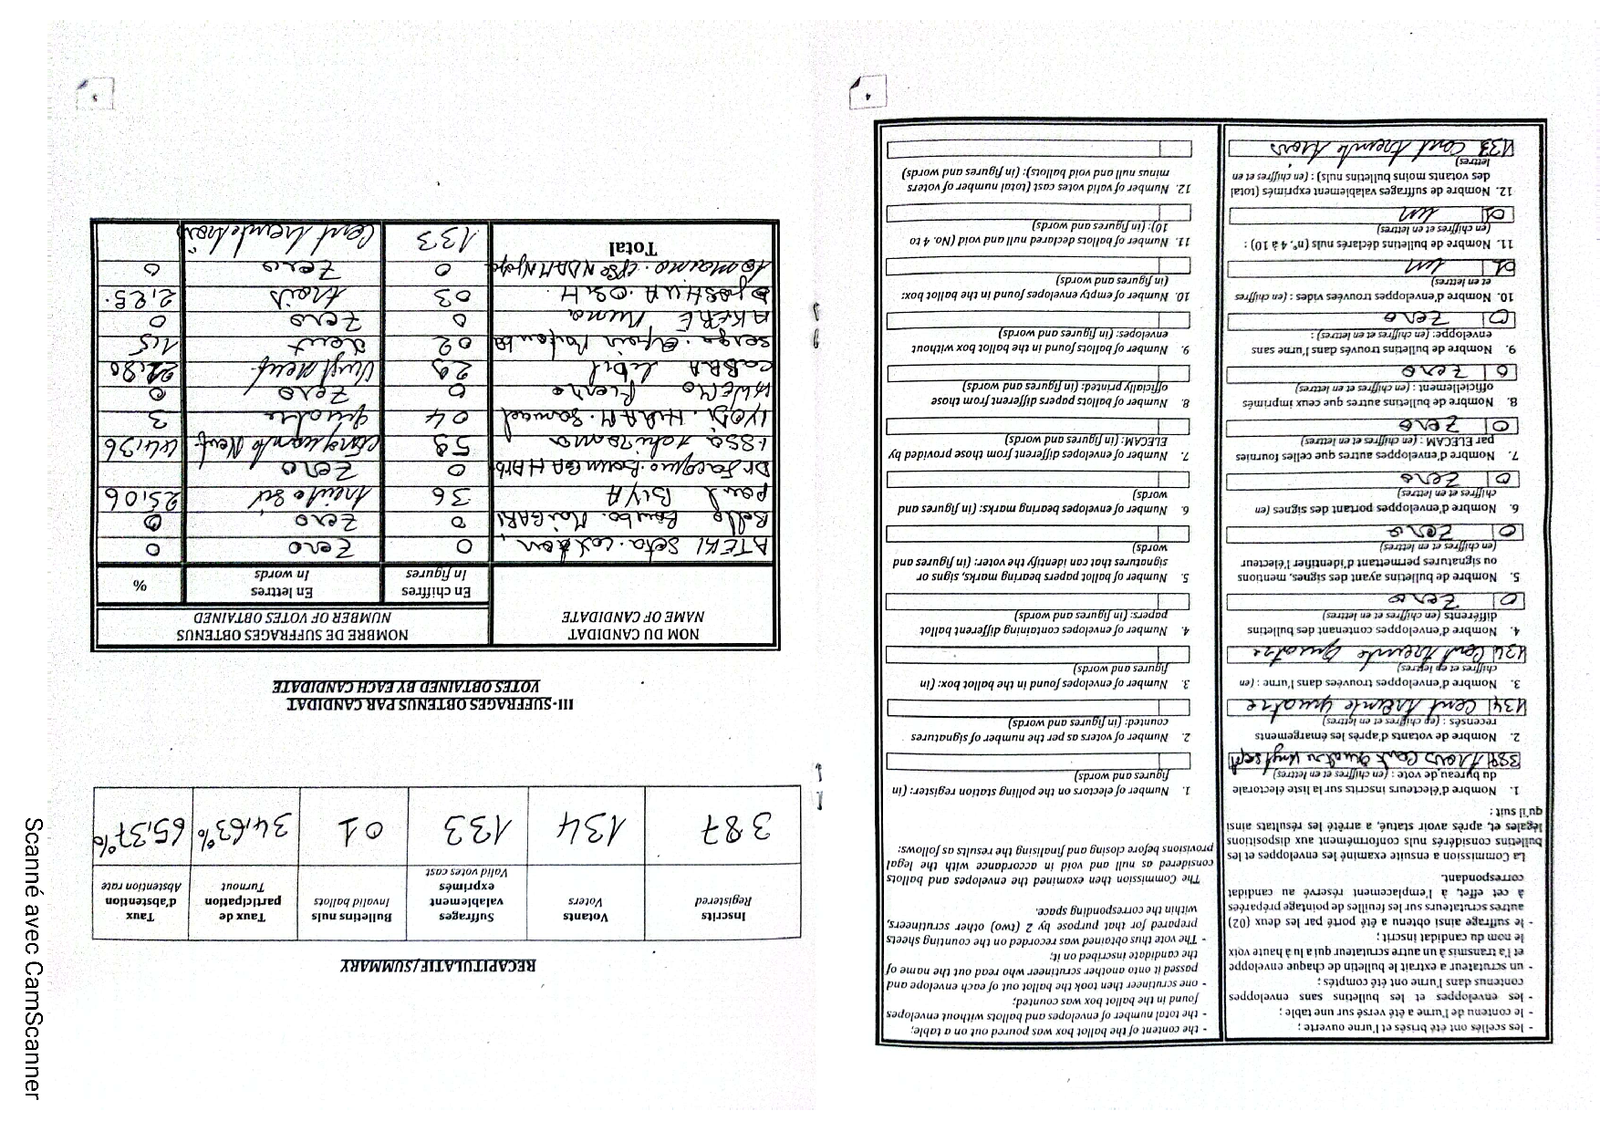 - les scellés ont été brisés et l'urne ouverte ;
- le contenu de l'urne a été versé sur une table ;
- les enveloppes et les bulletins sans enveloppes
contenus dans l'urne ont été comptés ;
- un scrutateur a extrait le bulletin de chaque enveloppe
et l'a transmis à un autre scrutateur qui l'a lu à haute voix
le nom du candidat inscrit ;
- le suffrage ainsi obtenu a été porté par les deux (02)
autres scrutateurs sur les feuilles de pointage préparées
à cet effet, à l'emplacement réservé au candidat
correspondant.
La Commission a ensuite examiné les enveloppes et les
bulletins considérés nuls conformément aux dispositions
légales et, après avoir statué, a arrêté les résultats ainsi
qu'il suit :
1. Nombre d'électeurs inscrits sur la liste électorale
du bureau de vote : (en chiffres et en lettres)
387 trois cent quatre vingt sept
2. Nombre de votants d'après les émargements
recensés : (en chiffres et en lettres)
134 Cent trente quatre
3. Nombre d'enveloppes trouvées dans l'urne : (en
chiffres et en lettres)
134 Cent trente quatre
4. Nombre d'enveloppes contenant des bulletins
différents (en chiffres et en lettres)
0 Zero
5. Nombre de bulletins ayant des signes, mentions
ou signatures permettant d'identifier l'électeur
(en chiffres et en lettres)
0 Zero
6. Nombre d'enveloppes portant des signes (en
chiffres et en lettres)
0 Zero
7. Nombre d'enveloppes autres que celles fournies
par ELECAM : (en chiffres et en lettres)
0 Zero
8. Nombre de bulletins autres que ceux imprimés
officiellement : (en chiffres et en lettres)
0 Zero
9. Nombre de bulletins trouvés dans l'urne sans
enveloppe: (en chiffres et en lettres) :
0 Zero
10. Nombre d'enveloppes trouvées vides : (en chiffres
et en lettres)
01 un
11. Nombre de bulletins déclarés nuls (n°. 4 à 10) :
(en chiffres et en lettres)
01 un
12. Nombre de suffrages valablement exprimés (total
des votants moins bulletins nuls) : (en chiffres et en
lettres)
133 Cent trente trois
- the content of the ballot box was poured out on a table;
- the total number of envelopes and ballots without envelopes
found in the ballot box was counted;
- one scrutineer then took the ballot out of each envelope and
passed it onto another scrutineer who read out the name of
the candidate inscribed on it;
- The vote thus obtained was recorded on the counting sheets
prepared for that purpose by 2 (two) other scrutineers,
within the corresponding space.
The Commission then examined the envelopes and ballots
considered as null and void in accordance with the legal
provisions before closing and finalising the results as follows:
1. Number of electors on the polling station register: (in
figures and words)
2. Number of voters as per the number of signatures
counted: (in figures and words)
3. Number of envelopes found in the ballot box: (in
figures and words)
4. Number of envelopes containing different ballot
papers: (in figures and words)
5. Number of ballot papers bearing marks, signs or
signatures that can identify the voter: (in figures and
words)
6. Number of envelopes bearing marks: (in figures and
words)
7. Number of envelopes different from those provided by
ELECAM: (in figures and words)
8. Number of ballots papers different from those
officially printed: (in figures and words)
9. Number of ballots found in the ballot box without
envelopes: (in figures and words)
10. Number of empty envelopes found in the ballot box:
(in figures and words)
11. Number of ballots declared null and void (No. 4 to
10): (in figures and words)
12. Number of valid votes cast (total number of voters
minus null and void ballots): (in figures and words)
4
RECAPITULATIF/SUMMARY
Inscrits Registered
Votants Voters
Suffrages valablement exprimés Valid votes cast
Bulletins nuls Invalid ballots
Taux de participation Turnout
Taux d'abstention Abstention rate
387 134 133 01 34,63% 65,37%
III-SUFFRAGES OBTENUS PAR CANDIDAT
VOTES OBTAINED BY EACH CANDIDATE
NOM DU CANDIDAT
NAME OF CANDIDATE
NOMBRE DE SUFFRAGES OBTENUS
NUMBER OF VOTES OBTAINED
En chiffres
In figures
En lettres
In words
%
ATEKI Seta Caxton 0 Zero 0
Bello Bouba Maigari 0 Zero 0
Paul BIYA 36 trente six 25,06
Dr Jacques Bouyahaga 0 Zero
ISSA tchiroma 59 Cinquante Neuf 44,36
IYODI HIRAM Samuel 04 quatre 3
KWEMO Pierre 0 Zero 0
CABRAL Libii 29 Vingt Neuf 21,80
Serge Espoir Matomba 02 deux 1,5
AKERE Muna 0 Zero 0
JOSHUA OSIH 03 trois 2,25
tomaino 0 Zero 0
Total 133 Cent trente trois
5
Scanné avec CamScanner